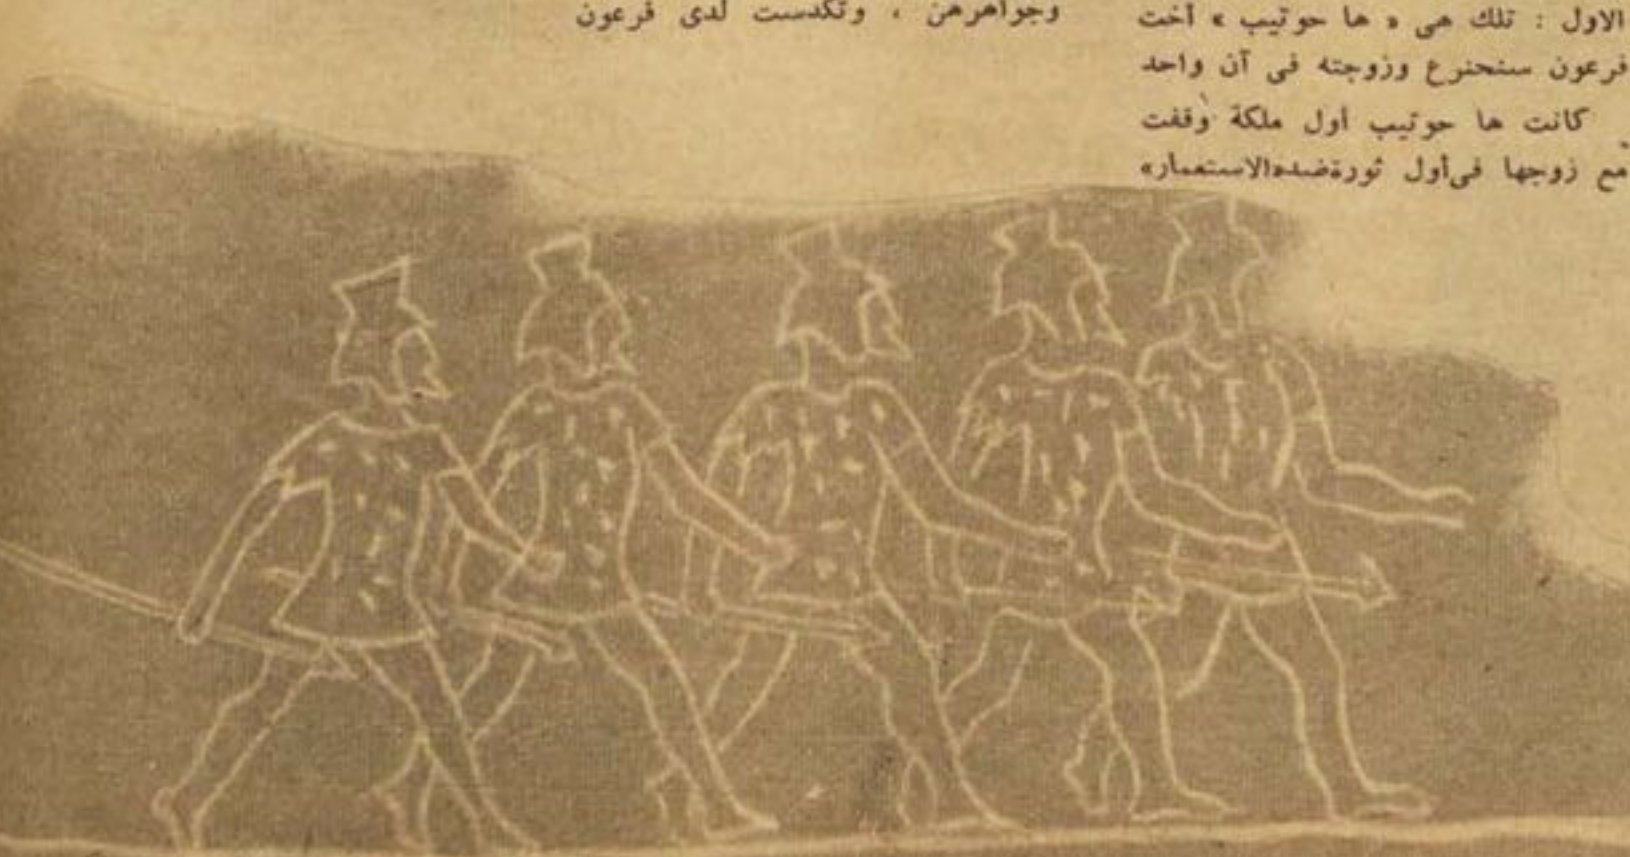 الاول : تلك هى « ها حوتيب » أخت
فرعون سنحنرع وزوجته فى آن واحد
كانت ها حوتيب أول ملكة وقفت
مع زوجها فى أول ثورة ضد «الاستعمار»
وجواهرهن ، وتكدست لدى فرعون